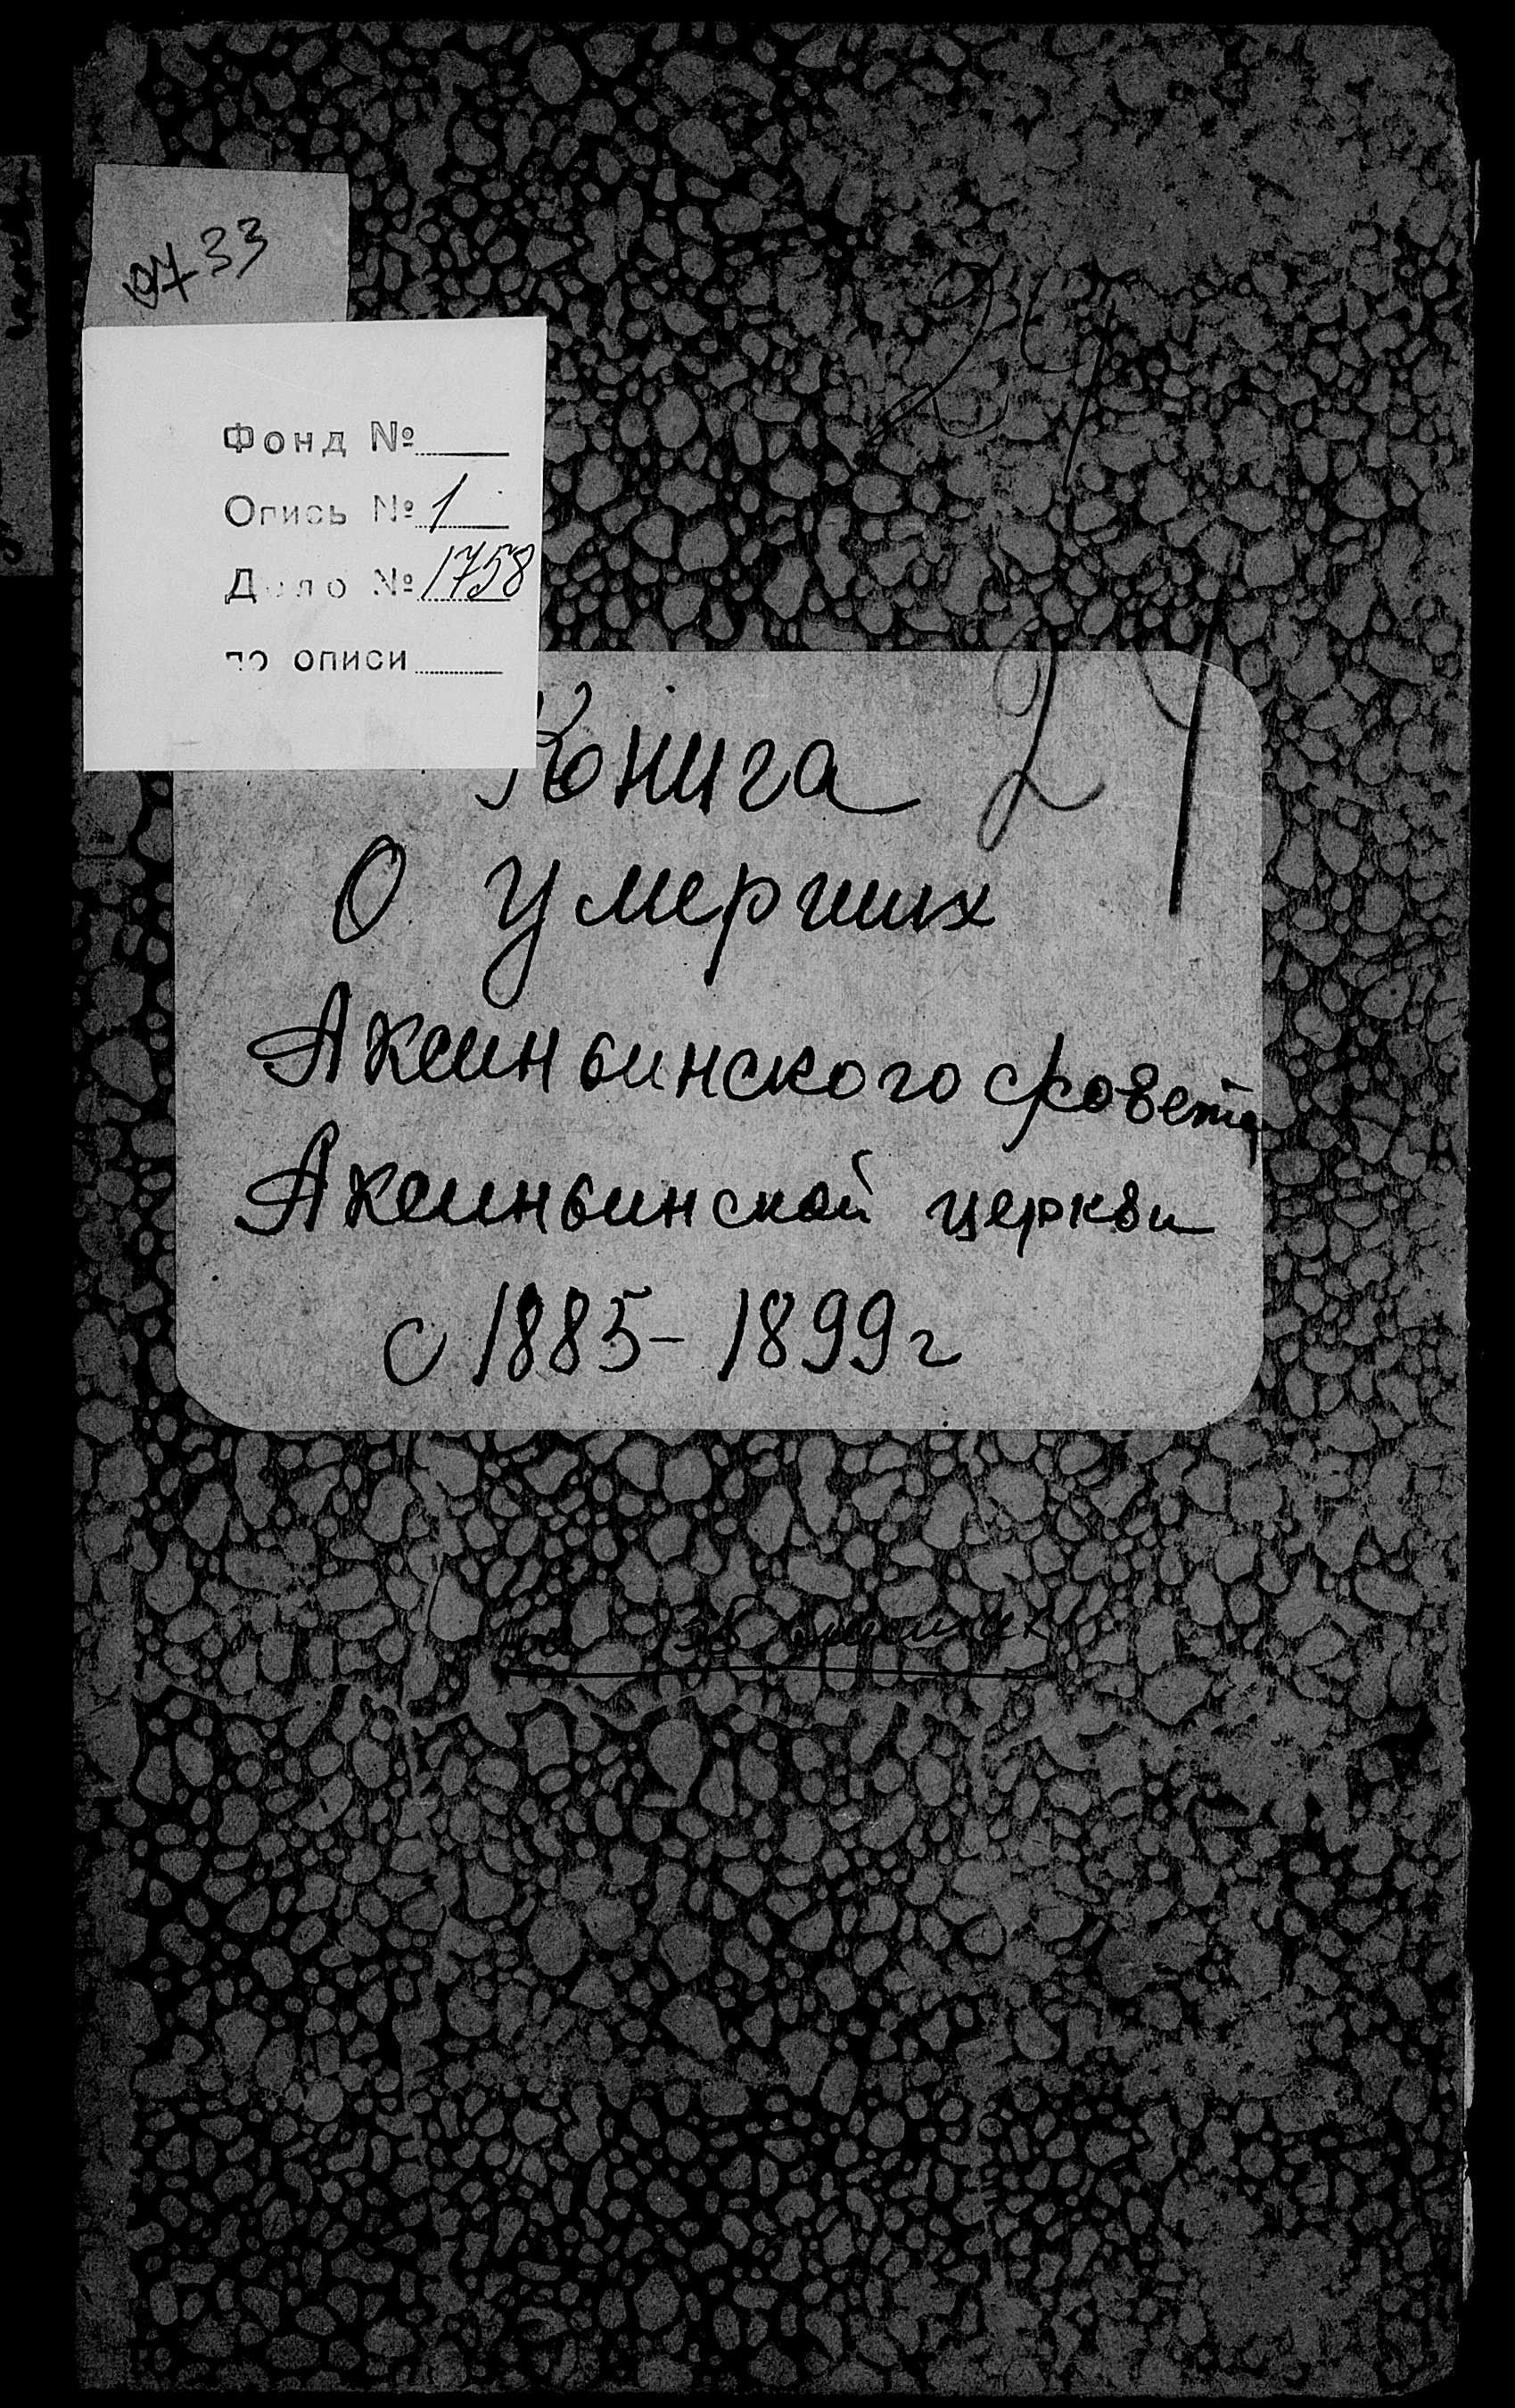 33
Фонд №
Опись № 1
Дело № 1758
по описи
Книга
О умерших
Аксиньинского с/совета
Аксиньинской церкви
с 1885-1899 г